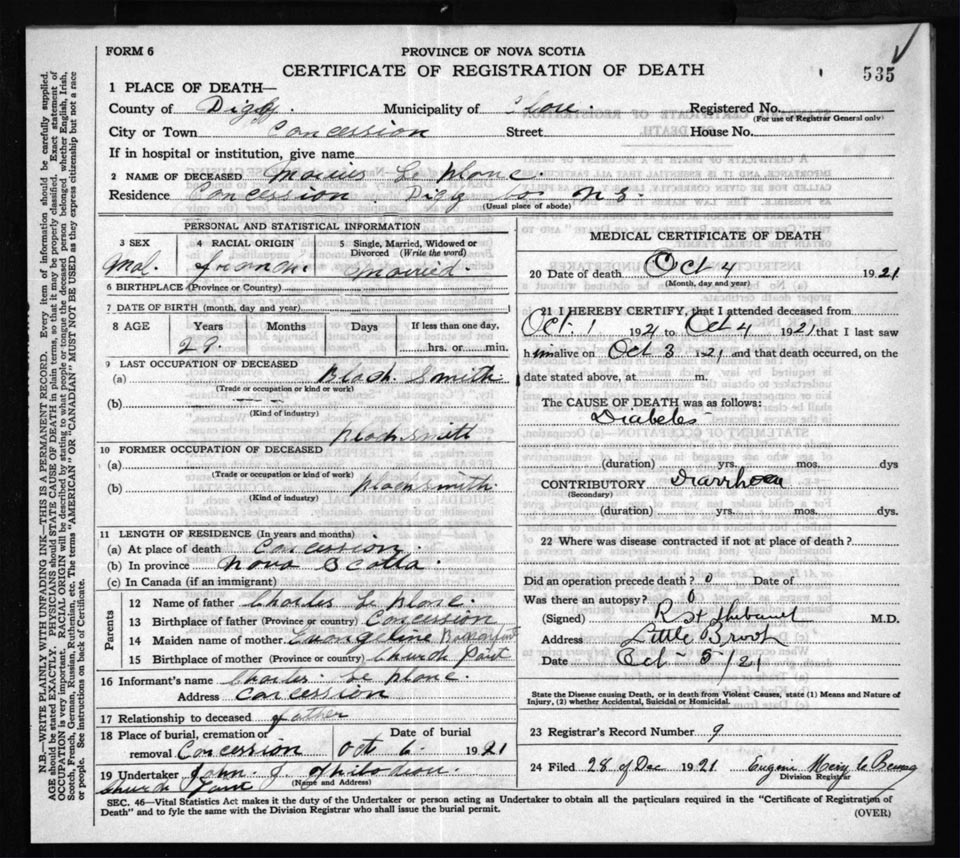 FORM 6
PROVINCE OF NOVA SCOTIA
CERTIFICATE OF REGISTRATION OF DEATH
535
1 PLACE OF DEATH—
County of Digby. Municipality of Clare. Registered No.
(For use of Registrar General only)
City or Town Concession Street House No.
If in hospital or institution, give name
2 NAME OF DECEASED Marius Le blanc.
Residence Concession. Digby Co N S.
(Usual place of abode)
PERSONAL AND STATISTICAL INFORMATION
3 SEX 4 RACIAL ORIGIN 5 Single, Married, Widowed or Divorced (Write the word)
Mal. french. Married.
6 BIRTHPLACE (Province or Country)
7 DATE OF BIRTH (month, day and year)
8 AGE Years Months Days If less than one day,
29. hrs. or min.
9 LAST OCCUPATION OF DECEASED
(a) Black Smith
(Trade or occupation or kind of work)
(b)
(Kind of industry)
blacksmith
10 FORMER OCCUPATION OF DECEASED
(a)
(Trade or occupation or kind of work)
(b) blacksmith
(Kind of industry)
11 LENGTH OF RESIDENCE (In years and months)
(a) At place of death Concession.
(b) In province Nova Scotia.
(c) In Canada (if an immigrant)
Parents
12 Name of father Charles Le blanc.
13 Birthplace of father (Province or country) Concession
14 Maiden name of mother Evangeline
15 Birthplace of mother (Province or country) Church Point
16 Informant's name Charles Le blanc.
Address Concession
17 Relationship to deceased father
18 Place of burial, cremation or Date of burial
removal Concession Oct 6. 1921
19 Undertaker John. J.
(Name and Address)
Church Point
MEDICAL CERTIFICATE OF DEATH
20 Date of death Oct 4 1921
(Month, day and year)
21 I HEREBY CERTIFY, that I attended deceased from
Oct. 1 1921 to Oct 4 1921 that I last saw
him alive on Oct 3 1921 and that death occurred, on the
date stated above, at m.
The CAUSE OF DEATH was as follows:
Diabetes
(duration) yrs. mos. dys
CONTRIBUTORY Diarrhoea
(Secondary)
(duration) yrs. mos. dys
22 Where was disease contracted if not at place of death?
Did an operation precede death? 0 Date of
Was there an autopsy? 0
(Signed) M.D.
Address Little Brook
Date Oct - 5/21
State the Disease causing Death, or in death from Violent Causes, state (1) Means and Nature of
Injury, (2) whether Accidental, Suicidal or Homicidal.
23 Registrar's Record Number 9
24 Filed 28 of Dec 1921
Division Registrar
SEC. 46—Vital Statistics Act makes it the duty of the Undertaker or person acting as Undertaker to obtain all the particulars required in the "Certificate of Registration of
Death" and to fyle the same with the Division Registrar who shall issue the burial permit.
(OVER)
N.B.—WRITE PLAINLY WITH UNFADING INK—THIS IS A PERMANENT RECORD. Every item of information should be carefully supplied.
AGE should be stated EXACTLY. PHYSICIANS should STATE CAUSE OF DEATH in plain terms, so that it may be properly classified. Exact statement of
OCCUPATION is very important. RACIAL ORIGIN will be described by stating to what people or tongue the deceased person belonged, whether English, Irish,
Scotch, French, German, Russian, Ruthenian, etc. The terms "AMERICAN" OR "CANADIAN" MUST NOT BE USED as they express citizenship but not a race
or people. See instructions on back of Certificate.